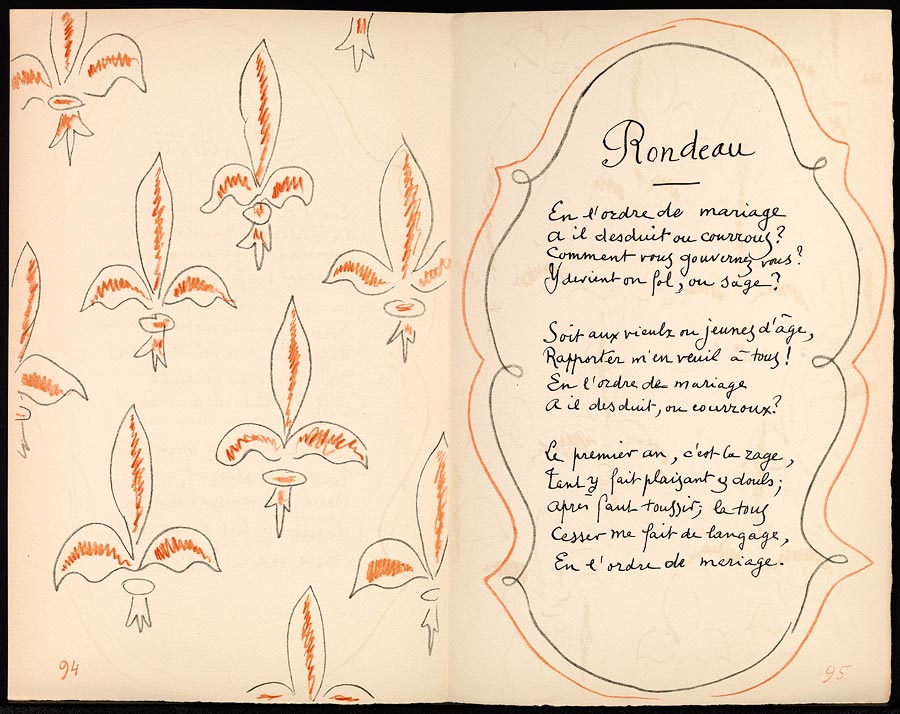 94
Rondeau
En l'ordre de mariage
a il desduit ou courrouz?
Comment vous gouvernez vous?
Y devient on fol, ou sage?
Soit aux vieulx ou jeunes d'âge,
Rapporter m'en veuil à tous!
En l'ordre de mariage
a il desduit, ou courroux?
Le premier an, c'est la rage,
Tant y fait plaisant et douls;
après faut toussir; la tous
Cesser me fait de langage,
En l'ordre de mariage.
95